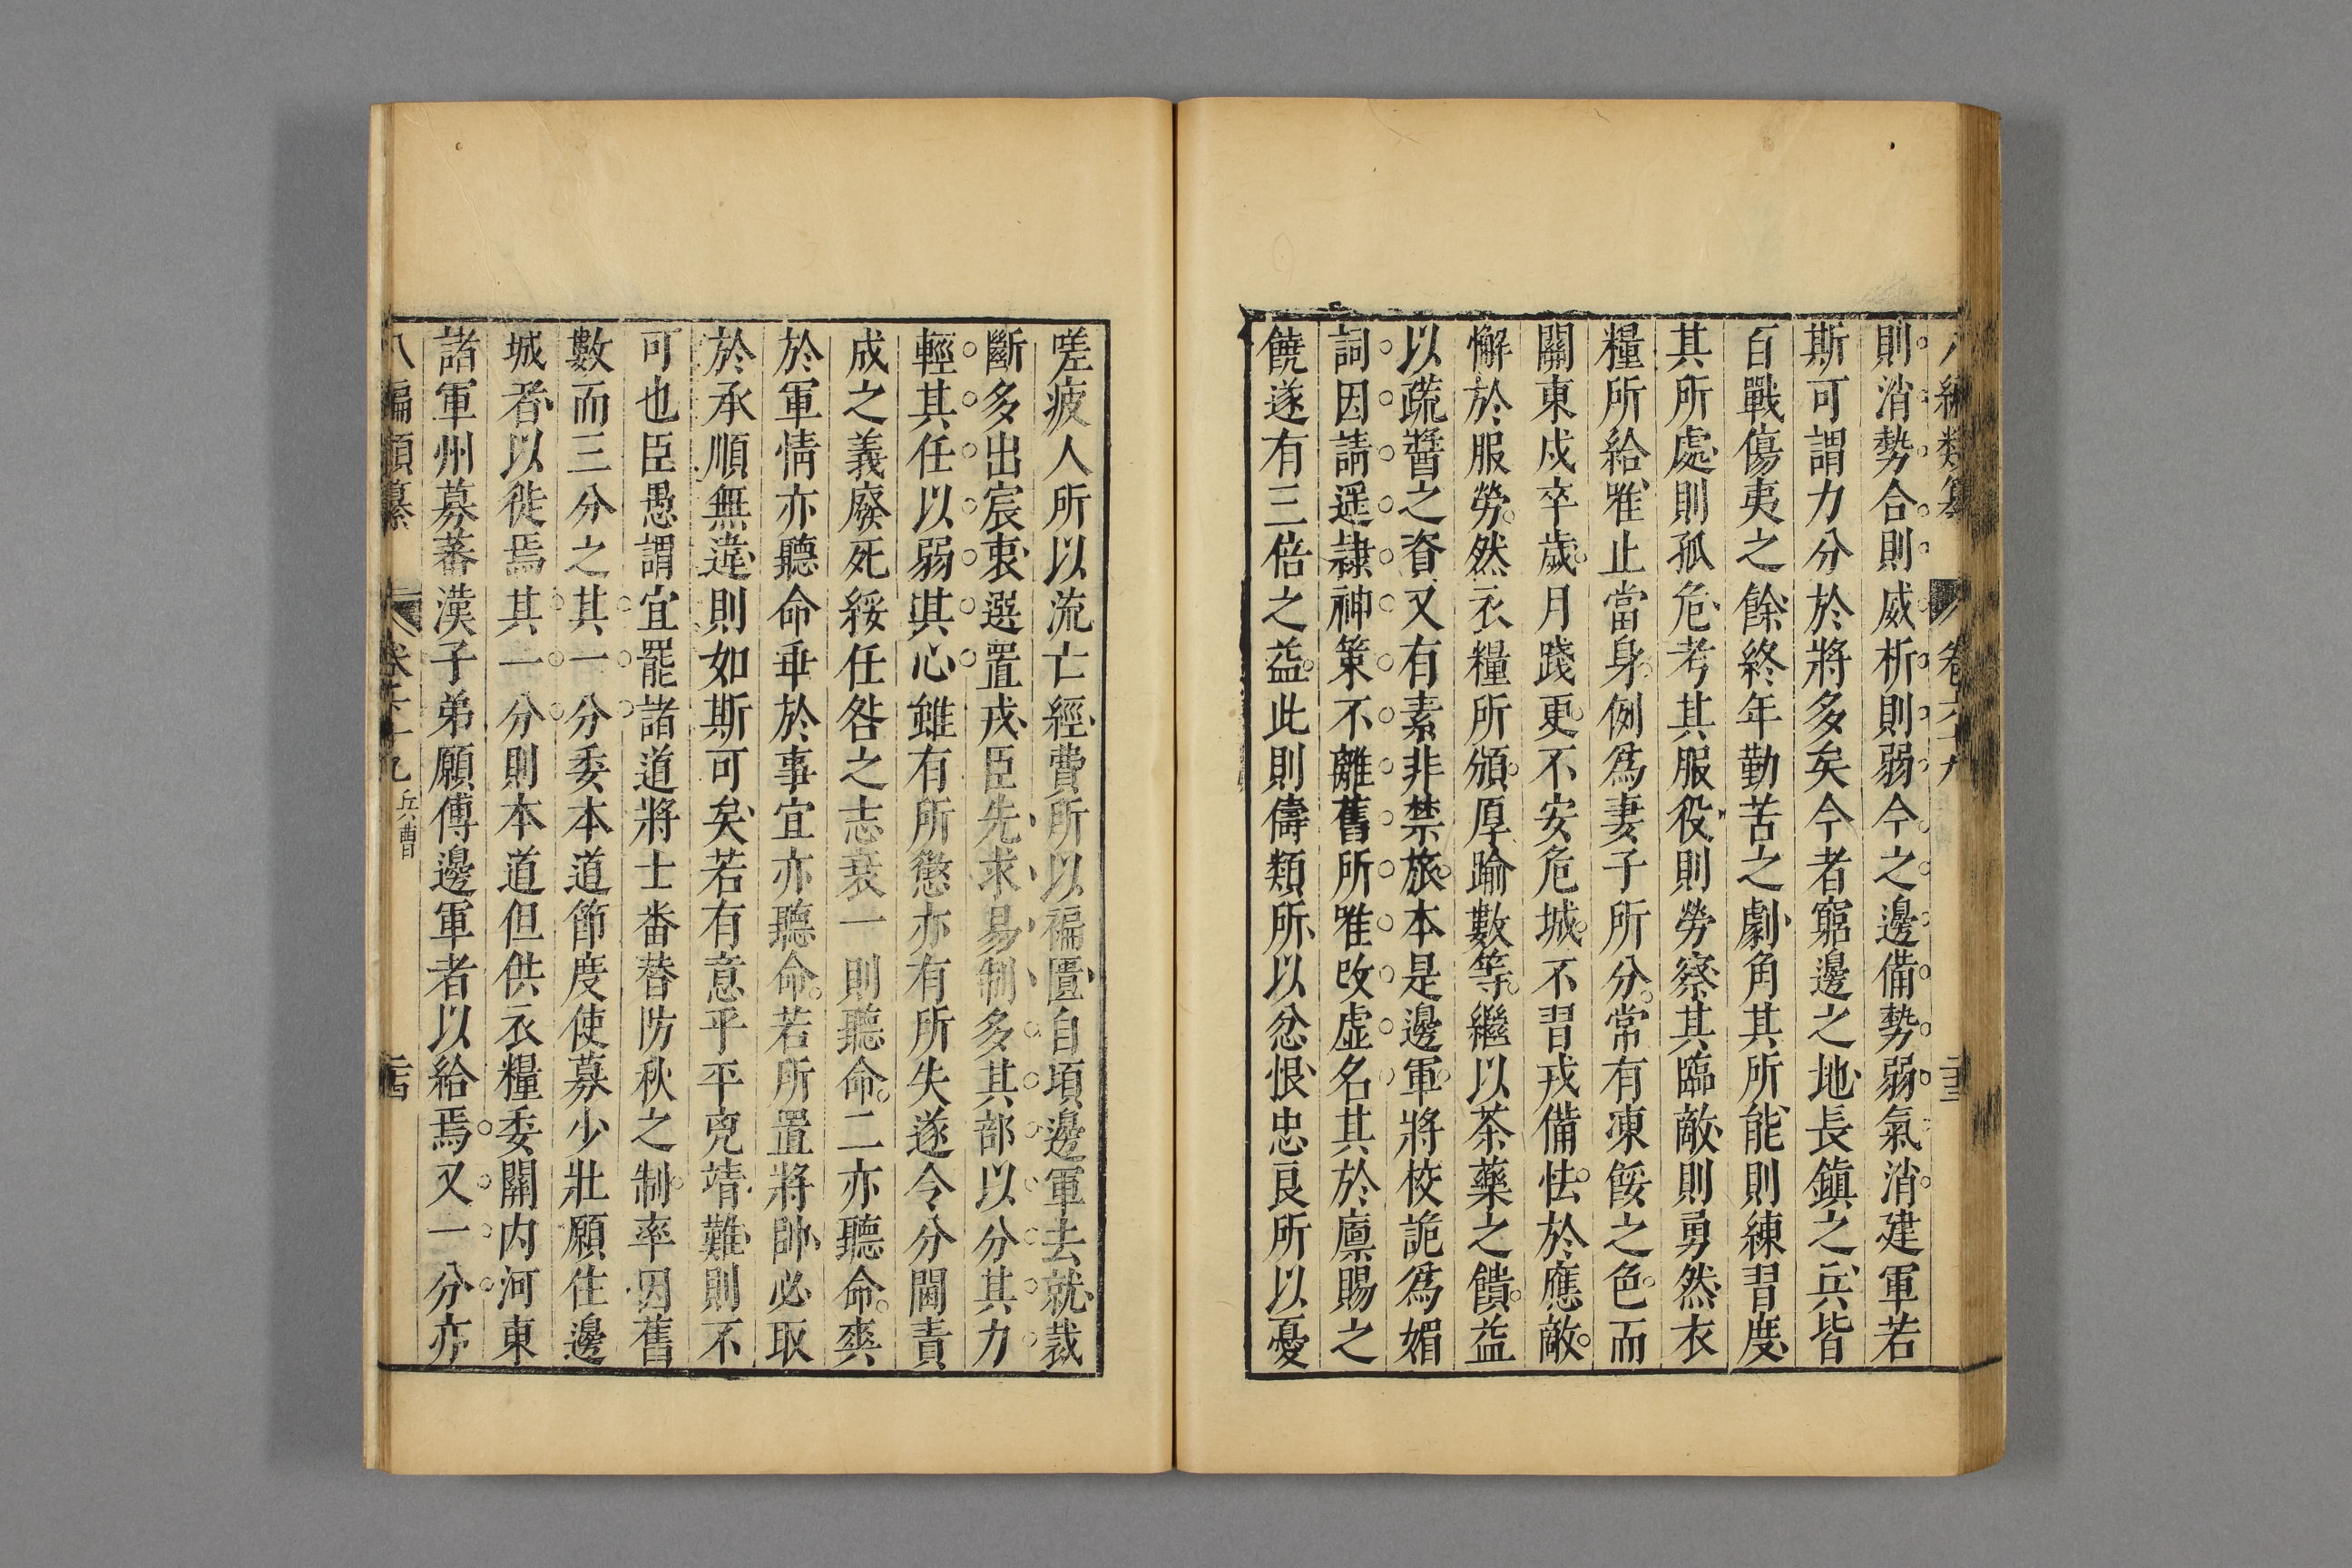 則消勢合則威析則弱今之邊備勢弱氣消建軍若
斯可謂力分於將多矣今者窮邊之地長鎮之兵皆
百戰傷夷之餘終年勤苦之劇角其所能則練習度
其所處則孤危考其服役則勞察其臨敵則勇然衣
糧所給唯止當身例爲妻子所分常有凍餒之色而
關東戍卒歲月踐更不安危城不習戎備怯於應敵
懈於服勞然衣糧所頒厚踰數等繼以茶藥之饋益
以蔬醬之資又有素非禁旅本是邊軍將校詭爲媚
詞因請遥隷神策不離舊所唯改虛名其於廪賜之
饒遂有三倍之益此則儔類所以忿恨忠良所以憂
嗟疲人所以流亡經費所以褊匱自頃邊軍去就裁
斷多出宸衷選置戎臣先求易制多其部以分其力
輕其任以弱其心雖有所懲亦有所失遂令分閫責
成之義廢死綏任咎之志衰一則聽命二亦聽命爽
於軍情亦聽命乖於事宜亦聽命若所置將帥必取
於承順無違則如斯可矣若有意乎平兇靖難則不
可也臣愚謂宜罷諸道將士畨替防秋之制率因舊
數而三分之其一分委本道節度使募少壯願住邊
城者以徙焉其一分則本道但供衣糧委關内河東
諸軍州募蕃漢子弟願傅邊軍者以給焉又一分亦
八編類纂 卷 十九 兵曹 二十四